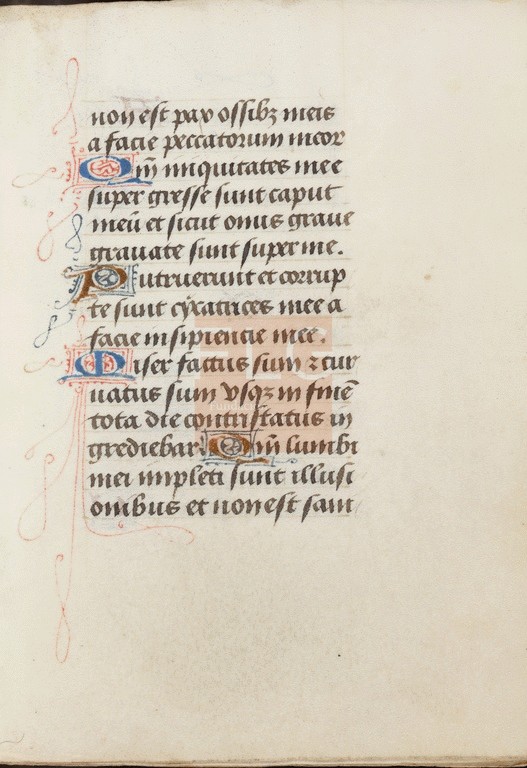 non est pax ossibȝ meis
a facie peccatorum meor
Qm̄ iniquitates mee
super gresse sunt caput
meū et sicut onus graue
grauate sunt super me.
Putruerunt et corrup
te sunt cyxatrices mee a
facie insipiencie mee.
Miser factus sum ⁊ cur
uatus sum vsqȝ in finē
tota die contristatus in
grediebar. Qm̄ lumbi
mei impleti sunt illusi
onibus et non est sani